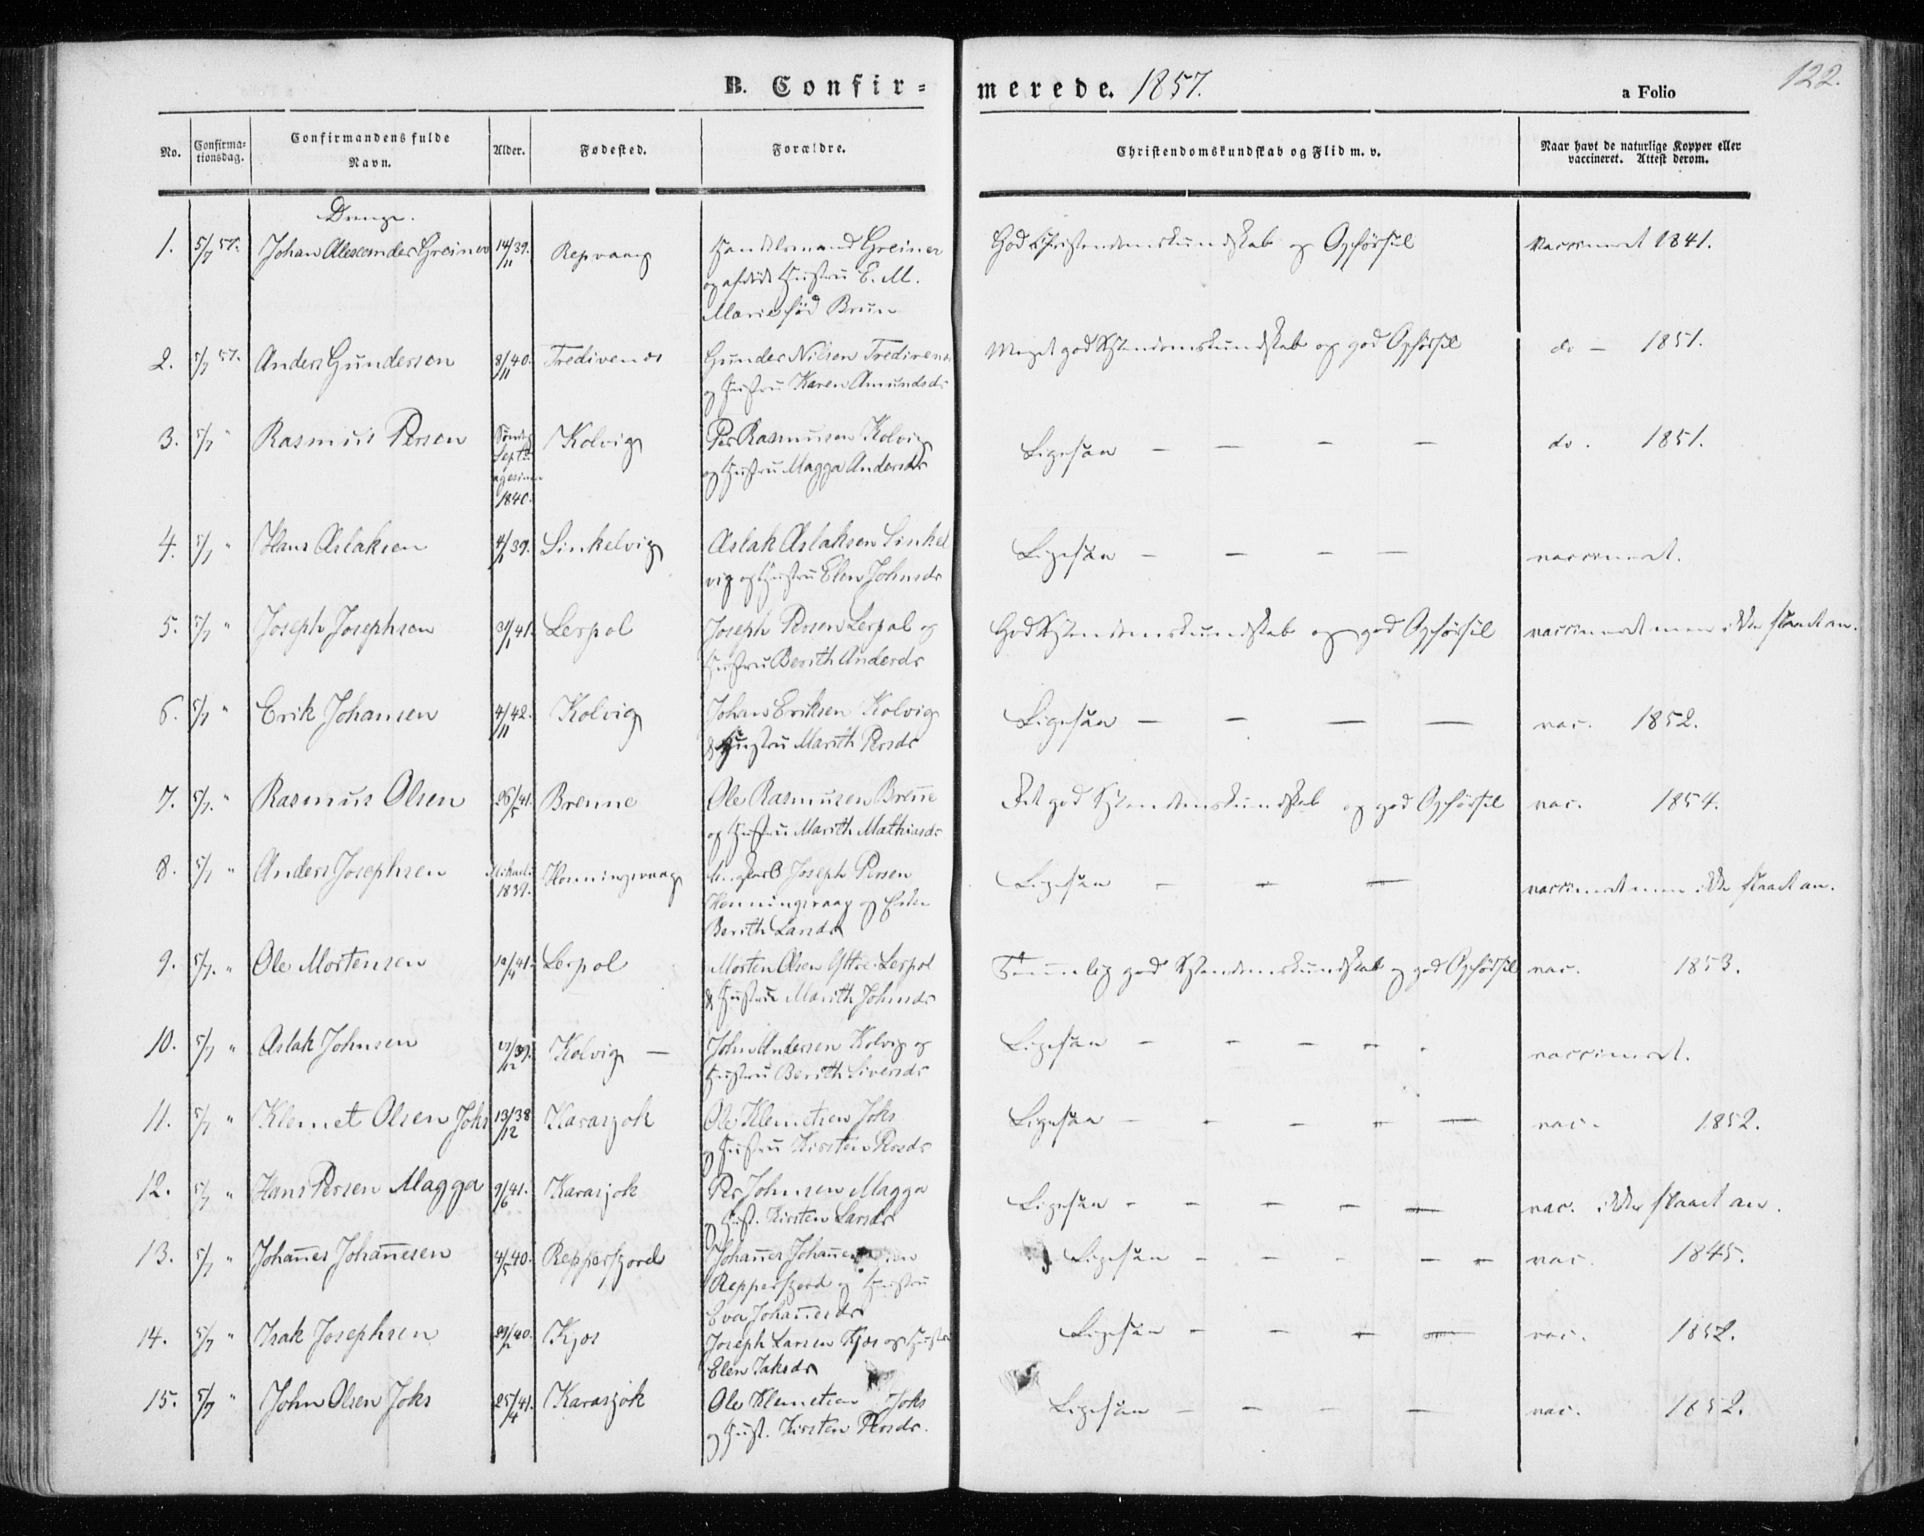 B. Confir= merede. 1857. a Folio 122.
No. Confirma-tionsdag. Confirmandens fulde Navn. Alder. Fødested. Forældre. Christendomskundskab og Flid m. v. Naar havt de naturlige Kopper eller vaccineret. Attest derom.
Drenge.
1. 5/7 57. Johan Alexander Greiner 14/11 39. Repvaag Handelsmand Greiner God Christendomskundskab og Opførsel vaccineret 1841.
og afdøde Hustru E. M.
Marie fød Brun
2. 5/7 57. Anders Gundersen 8/11 40. Tredivenes Gunder Nilsen Tredivenes Meget god Xstendomskundskab og god Opførsel do — 1851.
og Hustru Karen Amundsdr
3. 5/7 " Rasmus Persen Sønd. Septuagesima 1840. Kolvig Per Rasmusen Kolvig Ligesaa — — — — do. 1851.
og Hustru Magga Andersdr
4. 5/7 " Hans Aslaksen 4/1 39. Sinkelvig Aslak Aslaksen Sinkel Ligesaa — — — — vaccineret.
vig og Hustru Elen Johnsdr
5. 5/7 " Joseph Josephsen 31/1 41. Lerpol Joseph Persen Lerpol og God Xstendomskundskab og god Opførsel vaccineret men ikke slaaet an.
Hustru Berith Andersdr
6. 5/7 " Erik Johansen 4/11 42. Kolvig Johans Eriksen Kolvig Ligesaa — — — — vac. 1852.
& Hustru Marith Persdr
7. 5/7. " Rasmus Olsen 26/5 41. Brenne Ole Rasmusen Breñe Ret god Xstendomskundskab og god Opførsel vac. 1854.
og Hustru Marith Mathiasdr
8. 5/7 " Anders Josephsen Michaeli 1839. Honningsvaag Ungkarl Joseph Persen Ligesaa — — — vaccineret men ikke slaaet an.
Honningsvaag og Enke
Berith Larsdr
9. 5/7. " Ole Mortensen 12/4 41. Lerpol Morten Olsen Yttre-Lerpol Temmelig god Xstendomskundskab og god Opførsel vac. 1853.
& Hustru Marith Johnsdr
10. 5/7 " Aslak Johnsen /12 39. Kolvig — John Andersen Kolvig og Ligesaa — — — — vaccineret.
Hustru Berith Siversdr
11. 5/7 " Klemet Olsen Joks 13/12 38 Karasjok Ole Klemetsen Joks Ligesaa — — — — — vac. 1852.
og Hustru Kirsten Persdr
12. 5/7 " Hans Persen Magga 9/6 41. Karasjok Per Johnsen Magga Ligesaa — — — — — vac. ikke slaaet an.
og Hust. Kirsten Larsdr
13. 5/7 " Johañes Johañesen 4/5 40. Repperfjord Johañes Johañesen Ligesaa — — — — — vac. 1845.
Repperfjord og Hustru
Eva Johañesdr
14. 5/7 " Isak Josephsen 29/ 40. Kjos Joseph Larsen Kjos og Hustru Ligesaa — — — — vac. 1852.
Elen Isaksdr
15. 5/7 " John Olsen Joks 25/4 41. Karasjok Ole Klemetsen Joks Ligesaa — — — — vac. 1852.
og Hust. Kirsten Persdr.